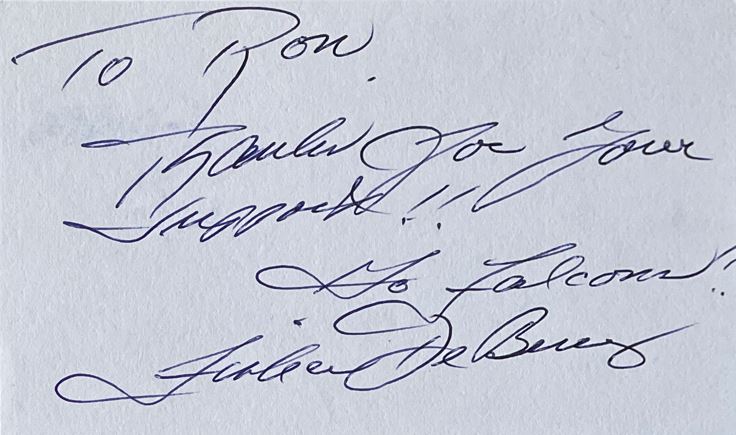 To Ron.
Thanks for Your
Support!!
Go Falcons!!
Fisher DeBerry